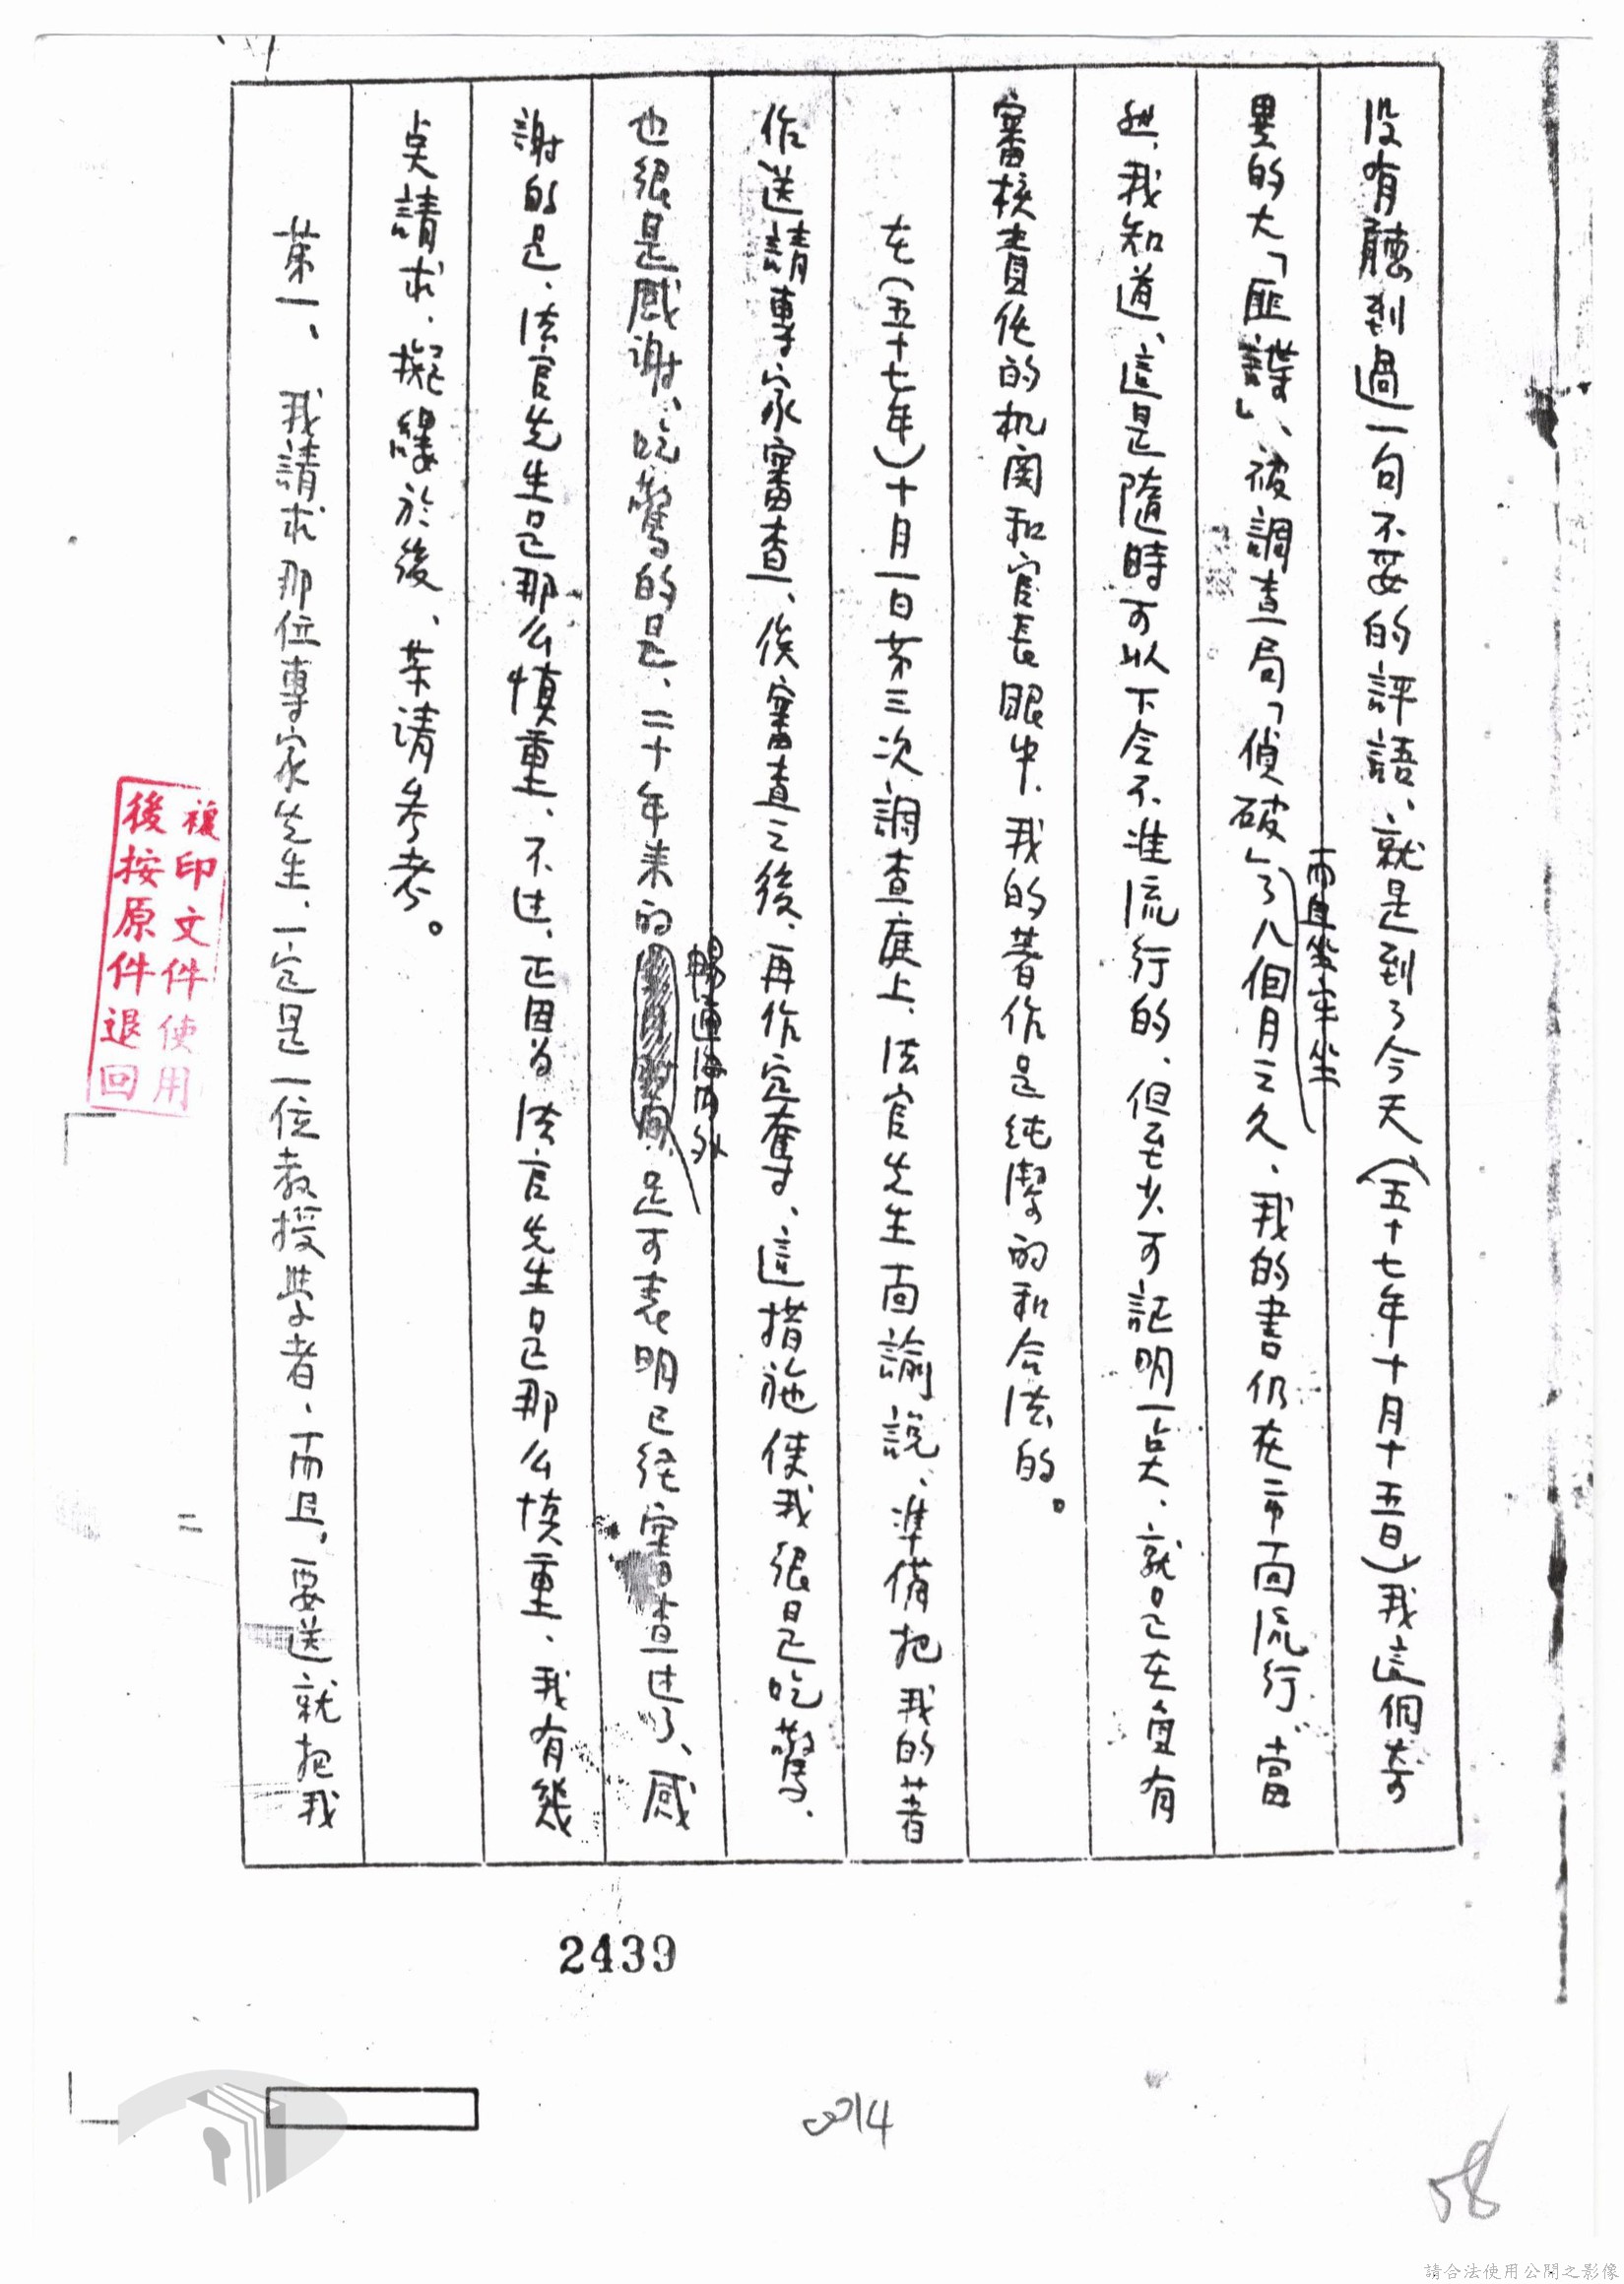 没有聽到過一句不妥的評語、就是到了今天(五十七年十月十五日)我這個奇
異的大「匪諜」、被調查局「偵破」了
而且坐牢坐
八個月之久、我的書仍在市面流行、當
然、我知道、這是隨時可以下令不准流行的、但至少可証明一点、就是在負有
審核責任的机関和官長眼中、我的著作是純潔的和合法的。
在(五十七年)十月一日第三次調查庭上、法官先生面諭說、準備把我的著
作送請專家審查、俟審查之後、再作定奪、這措施使我很是吃驚、
也很是感谢、吃驚的是、二十年来的
暢通海内外
足可表明已経審查过了、感
謝的是、法官先生是那么慎重、不过、正因为法官先生是那么慎重、我有幾
点請求、擬縷於後、恭请参考。
第一、我請求那位專家先生、一定是一位教授學者、而且、要送就把我
二
複印文件使用
後按原件退回
2439
0014
58
請合法使用公開之影像